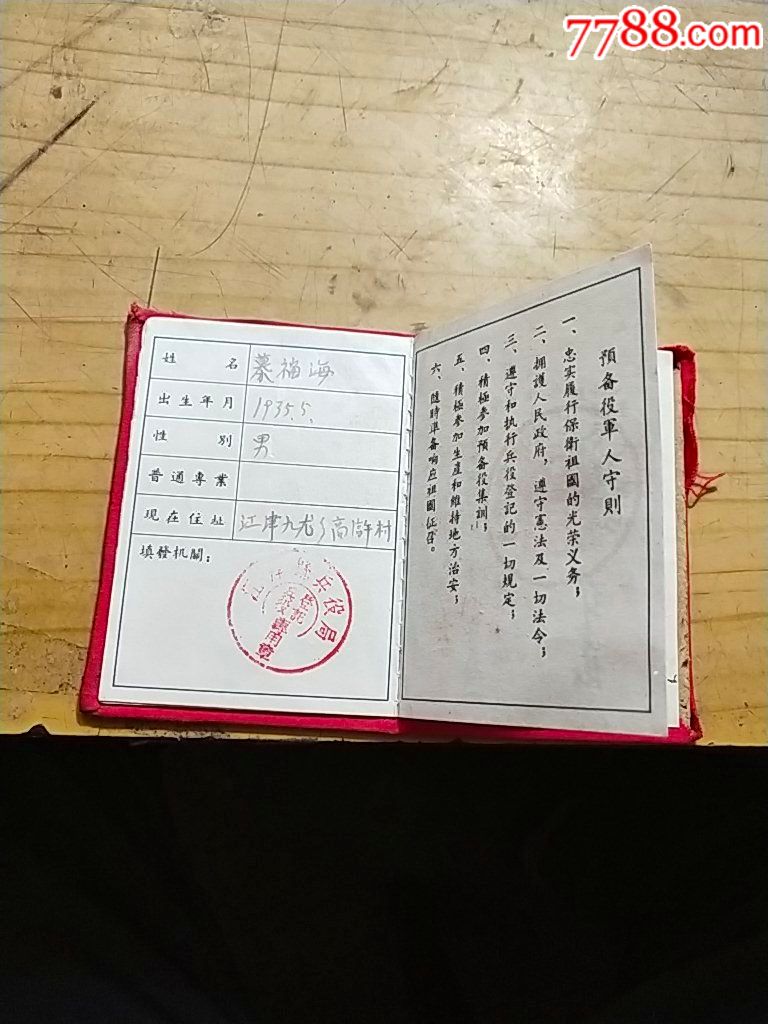 7788.com
姓名 蔡福海
出生年月 1935.5.
性別 男
普通專業
現在住址 江津九龙乡高滸村
填發机關:
縣兵役局
兵役登記專用章
預备役軍人守則
一、忠实履行保衛祖國的光荣义务;
二、拥護人民政府,遵守憲法及一切法令;
三、遵守和执行兵役登記的一切規定;
四、積極参加預备役集訓;
五、積極参加生產和維持地方治安;
六、隨時准备响应祖國征召。